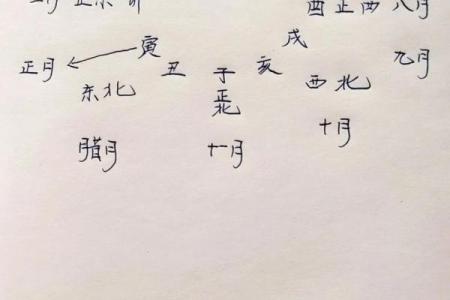 二月 正东 卯
酉 正西 八月
戌
寅
正月
丑 子 亥
九月
东北
正北
西北
腊月
十一月
十月